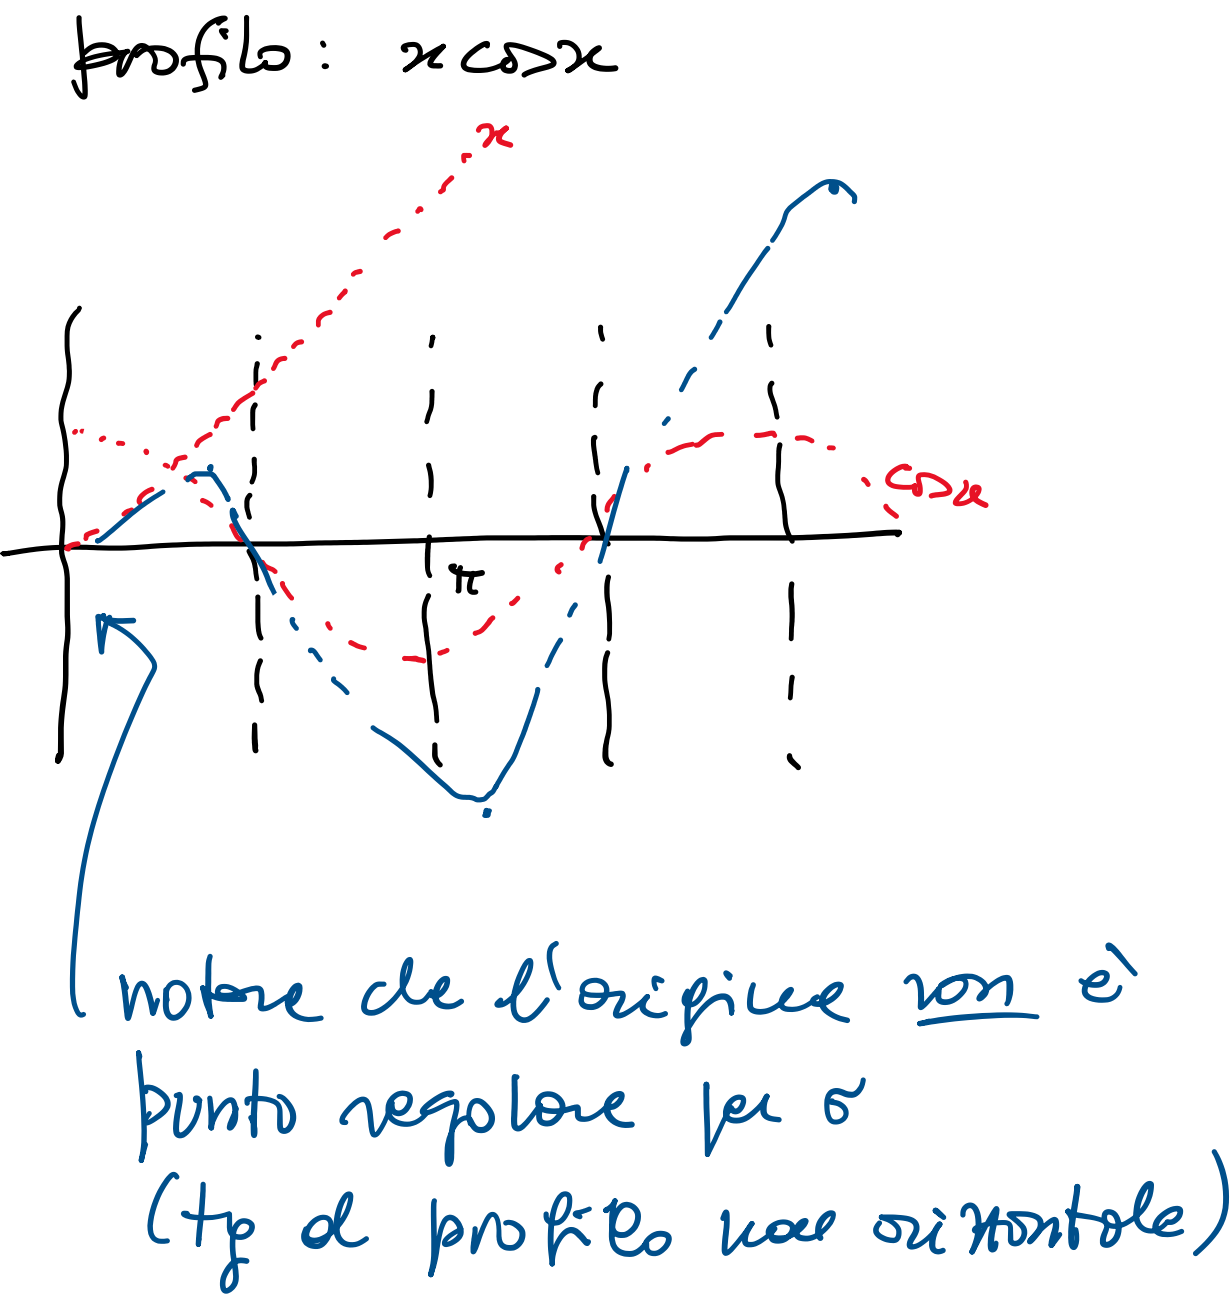 profilo: x cos x
x
cos x
π
notare che l'origine non è
punto regolare per σ
(tg al profilo non orizzontale)